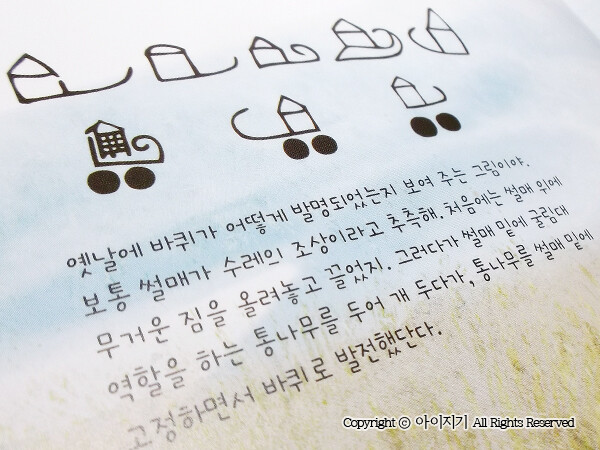 옛날에 바퀴가 어떻게 발명되었는지 보여 주는 그림이야.
보통 썰매가 수레의 조상이라고 추측해. 처음에는 썰매 위에
무거운 짐을 올려놓고 끌었지. 그러다가 썰매 밑에 굴림대
역할을 하는 통나무를 두어 개 두다가, 통나무를 썰매 밑에
고정하면서 바퀴로 발전했단다.
Copyright © 아이지기 All Rights Reserved